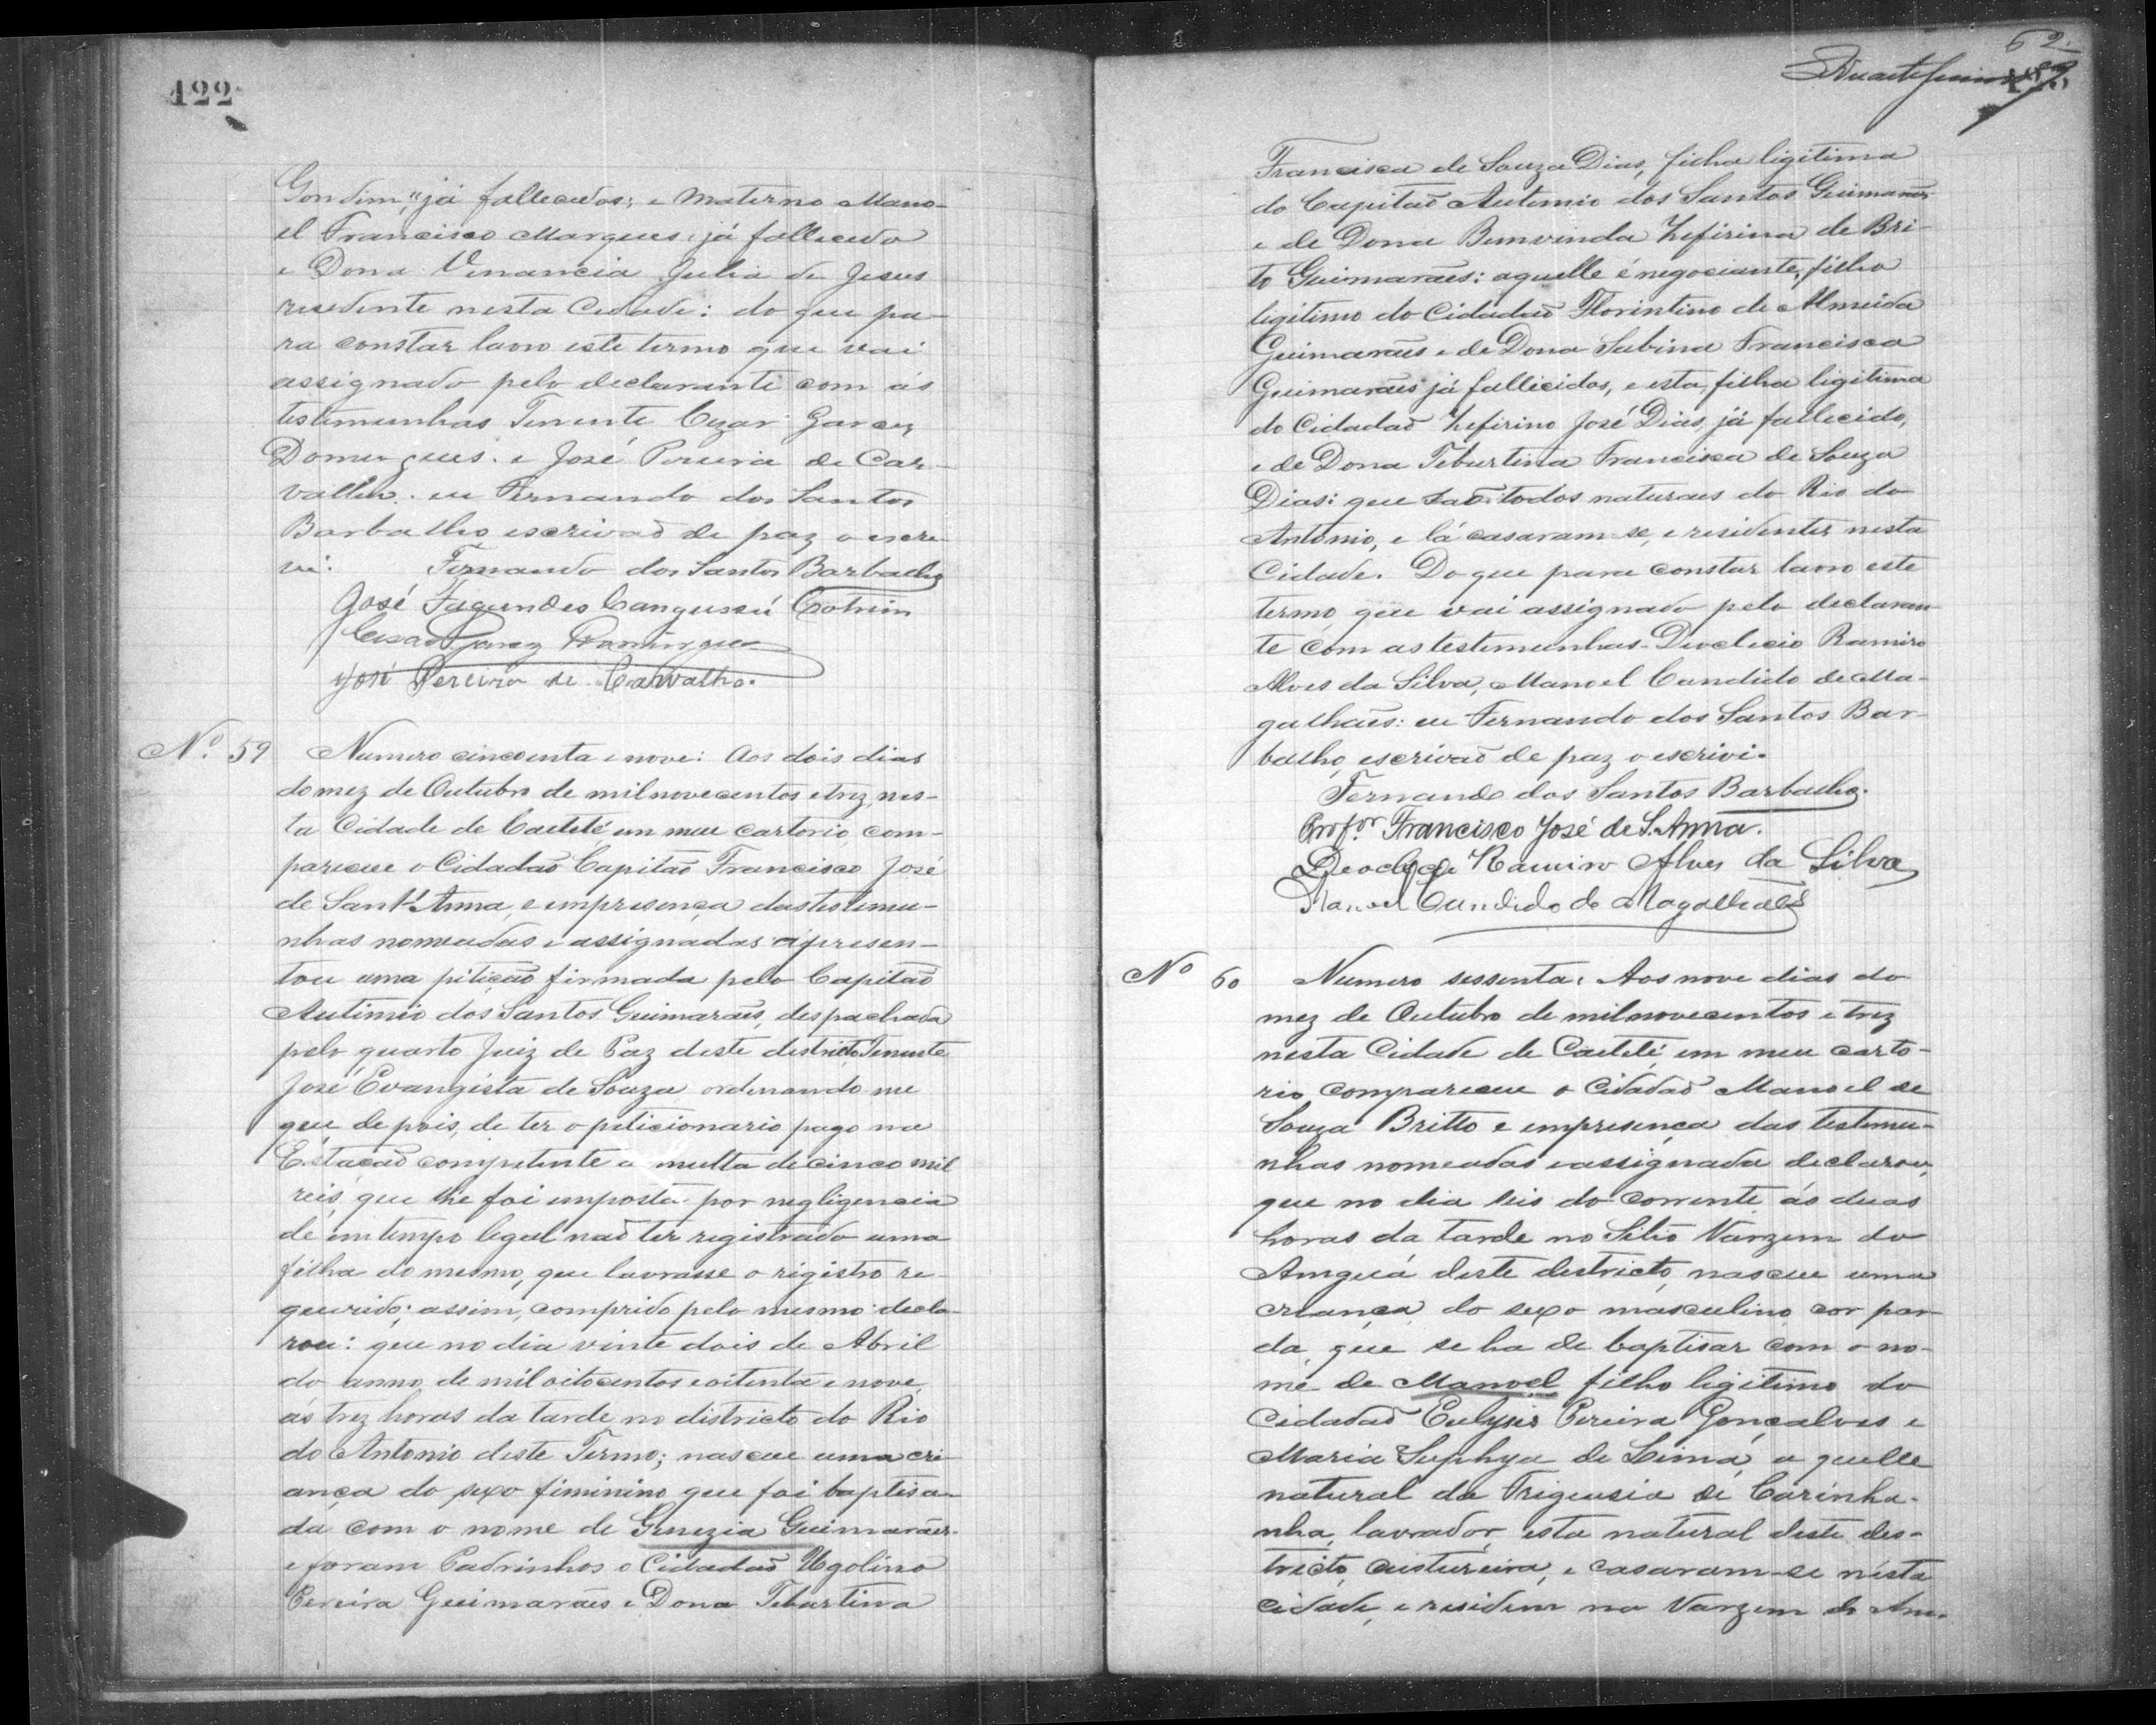 122
Gondim, já fallecidos; e materno Mano-
el Francisco Marques, já fallecido
e Dona Venancia Julia de Jesus
residente nesta Cidade: do que pa-
ra constar lavro este termo que vai
assignado pelo declarante com ás
testemunhas Tenente Cezar Garcez
Domingues. e José Pereira de Car-
valho. eu Fernando dos Santos
Barbalho escrivaõ de paz o escre-
vi. Fernando dos Santos Barbalho
José Fagundes Cangussú Cotrim
Cezar Garcez Domingues
José Pereira de Carvalho.
Nº. 59 Numero cincoenta e nove: Aos dois dias
do mez de Outubro de mil novecentos e trez, nes-
ta Cidade de Caeteté em meu cartorio, com-
pareceu o Cidadaõ Capitaõ Francisco José
de Sant'Anna, e em presença das testemu-
nhas nomeadas e assignadas apresen-
tou uma pitiçaõ firmada pelo Capitaõ
Antonio dos Santos Guimarães, despachada
pelo quarto Juiz de Paz deste districto Tenente
José Evangista de Souza ordenando me
que de pois, de ter o piticionario pago na
Estaçaõ competente a multa de cinco mil
reis, que lhe foi imposta por negligencia
de em tempo legal naõ ter registrado uma
filha do mesmo, que lavrasse o rigistro re-
querido; assim, comprido pelo mesmo decla-
rou: que no dia vinte dois de Abril
do anno de mil oitocentos e oitenta e nove,
ás trez horas da tarde no districto do Rio
do Antonio deste Termo; nasceu uma cri-
ança do sexo fiminino que foi baptisa-
da com o nome de Genezia Guimarães.
e foram Padrinhos o Cidadaõ Ugolino
Pereira Guimarães e Dona Teburtina
62.
Francisca de Souza Dias, filha ligitima
do Capitaõ Antonio dos Santos Guimarães
e de Dona Bemvinda Zefirina de Bri-
to Guimarães: aquelle é negociante, filho
ligitimo do Cidadaõ Florintino de Almeida
Guimarães e de Dona Sabina Francisca
Guimarães já fallicidos, e esta, filha ligitima
do Cidadaõ Zefirino José Dias, já fallecido,
e de Dona Teburtina Francisca de Souza
Dias: que saõ todos naturaes do Rio do
Antonio, e lá casaram-se, e residentes nesta
Cidade. Do que para constar lavro este
termo, que vai assignado pelo declaran-
te com as testemunhas Dioclicio Ramiro
Alves da Silva, Manoel Candido de Ma-
galhaẽs: eu Fernando dos Santos Bar-
balho, escrivaõ de paz o escrivi.
Fernando dos Santos Barbalho.
Profor. Francisco José de S. Anna.
Ramiro Alves da Silva
Manoel Candido de Magalhães
Nº 60 Numero sessenta: Aos nove dias do
mez de Outubro de mil novecentos e trez
nesta Cidade de Caeteté em meu carto-
rio compareceu o Cidadaõ Manoel de
Souza Britto e em presença das testemu-
nhas nomeadas e assignada declarou,
que no dia seis do corrente ás duas
horas da tarde no Sitio Varzem do
Anguá deste destricto, nasceu uma
criança do sexo masculino cor par-
da, que se ha de baptisar com o no-
me de Manoel filho ligitimo do
Cidadaõ Eulysis Pereira Gonçalves e
Maria Suphya de Lima, a quelle
natural da Frigusia de Carinha-
nha, lavrador, esta natural deste des-
tricto custureira, e casaram-se nésta
cidade, e residem na Varzem do An-